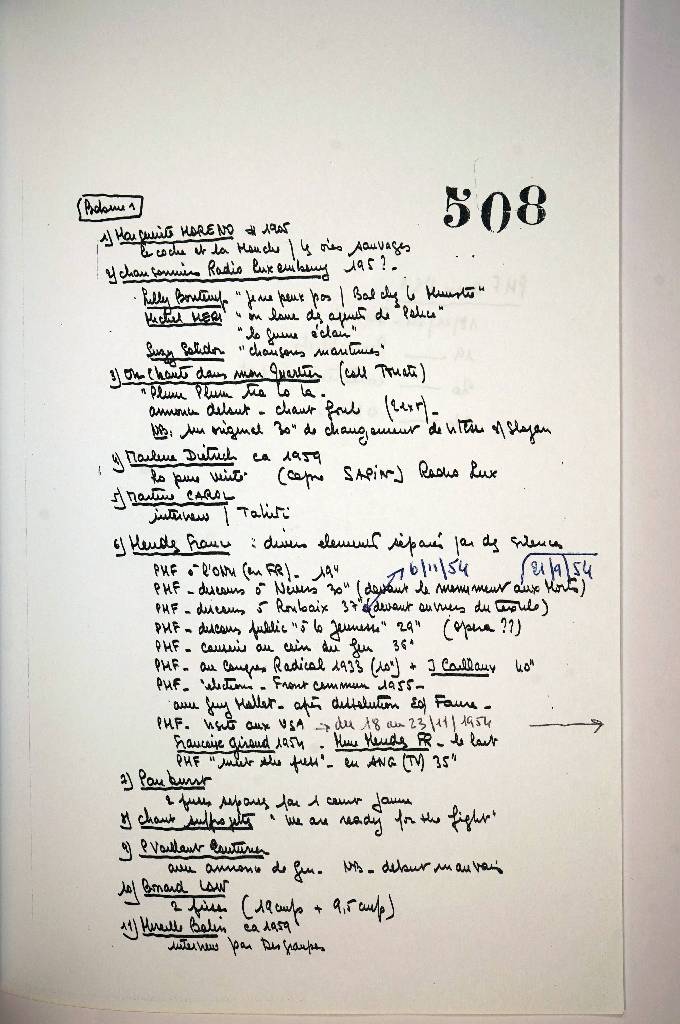 508
1) Marguerite MORENO 1905
le coche et la Mouche / les oies sauvages
2) chansonniers Radio Luxembourg 195?.
"je ne peux pas /
Michel HERI "on loue des agents de Police"
"la guerre éclair"
Suzy Solidor "chansons maritimes"
3) On Chante dans mon Quartier (coll
"Plum Plum tra la la.
annonce début - chant foule
NB: sur original 30" de changement de vitesse
4) Marlene Dietrich ca 1959
(Capne SAPIN) Radio Lux
5) Martine CAROL
interview / Tahiti
6) Mendès France : divers éléments séparés par des silences
PMF à l'ONU (en FR) - 19" 6/11/54 21/9/54
PMF - discours à Nevers 30" (devant le monument aux Morts)
PMF - discours à Roubaix 37" (devant ouvriers du textile)
PMF - discours public "à la Jeunesse" 29" (opera ??)
PMF - causerie au coin du feu 36"
PMF - au congrès Radical 1933 (10") + J Caillaux 40"
PMF - élections - Front commun 1955 -
avec Guy Mollet - après dissolution Ed Faure -
PMF - visite aux USA → du 18 au 23/11/1954 →
Françoise Giroud 1954 - Mme Mendès FR -
PMF "meet the press" - en ANG (TV) 35"
7) Pankurst
2 faces séparées par 1 cœur jaune
8) chant suffragette "we are ready for the fight"
9) P Vaillant Couturier
avec annonce de Gen. NB - début mauvais
10) Bonard LAW
2 faces (19 cm/s + 9,5 cm/s)
11) Mireille Balin ca 1959
interview par Desgraupes